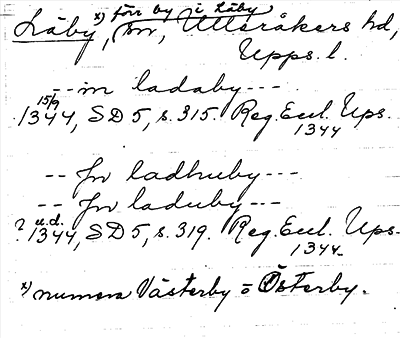 x) förr by i Läby
Läby, sn, Ulleråkers hd,
Upps. l.
--in ladaby---
15/9
1344, SD 5, s. 315. Reg. Eccl. Ups.
1344
-- Jn ladhuby---
-- Jn laduby---
? u.d.
1344, SD 5, s. 319. Reg. Eccl. Ups.
1344
x) numera Västerby o Österby.